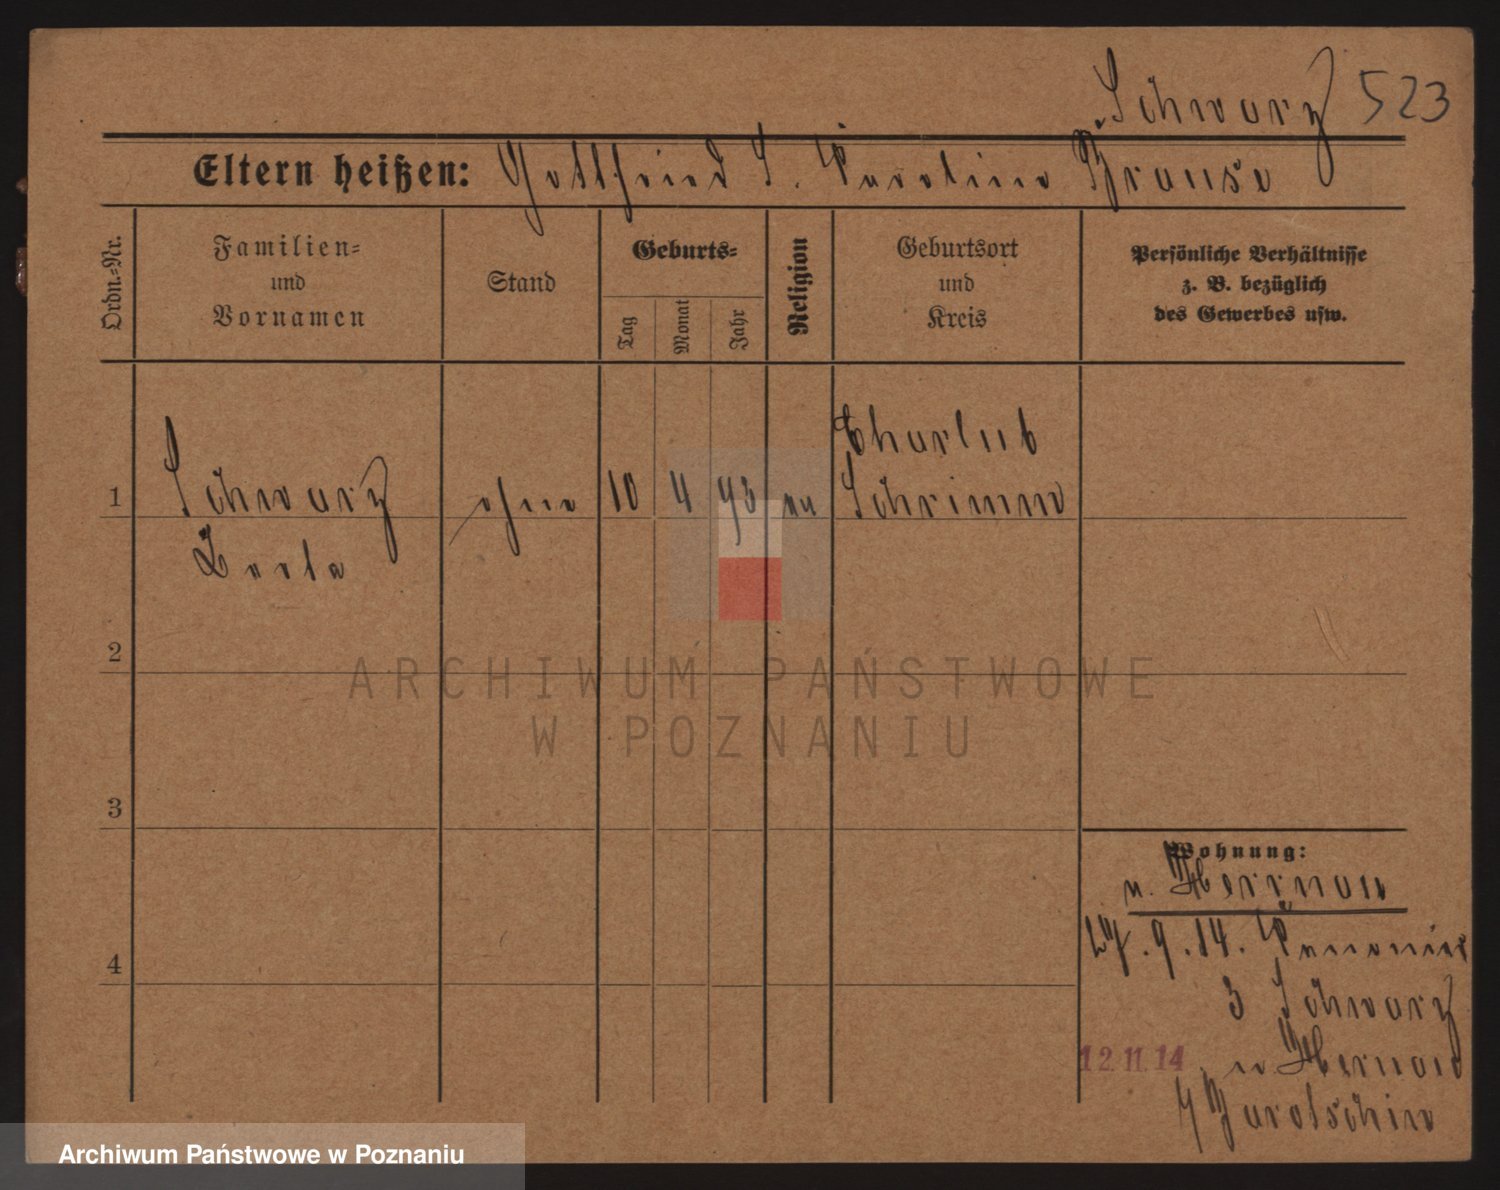 Schwarz 523
Eltern heißen: Gottfried S. Karoline Krause
Ordn.=Nr.
Familien=
und
Vornamen
Stand
Geburts=
Tag
Monat
Jahr
Religion
Geburtsort
und
Kreis
Persönliche Verhältnisse
z. B. bezüglich
des Gewerbes usw.
1
Schwarz
ohne
10
4
93
ev
Charlub
Schrimm
2
3
4
Wohnung:
n.
9.14.
3 Schwarz
12.11.14
ARCHIWUM PAŃSTWOWE
W POZNANIU
Archiwum Państwowe w Poznaniu